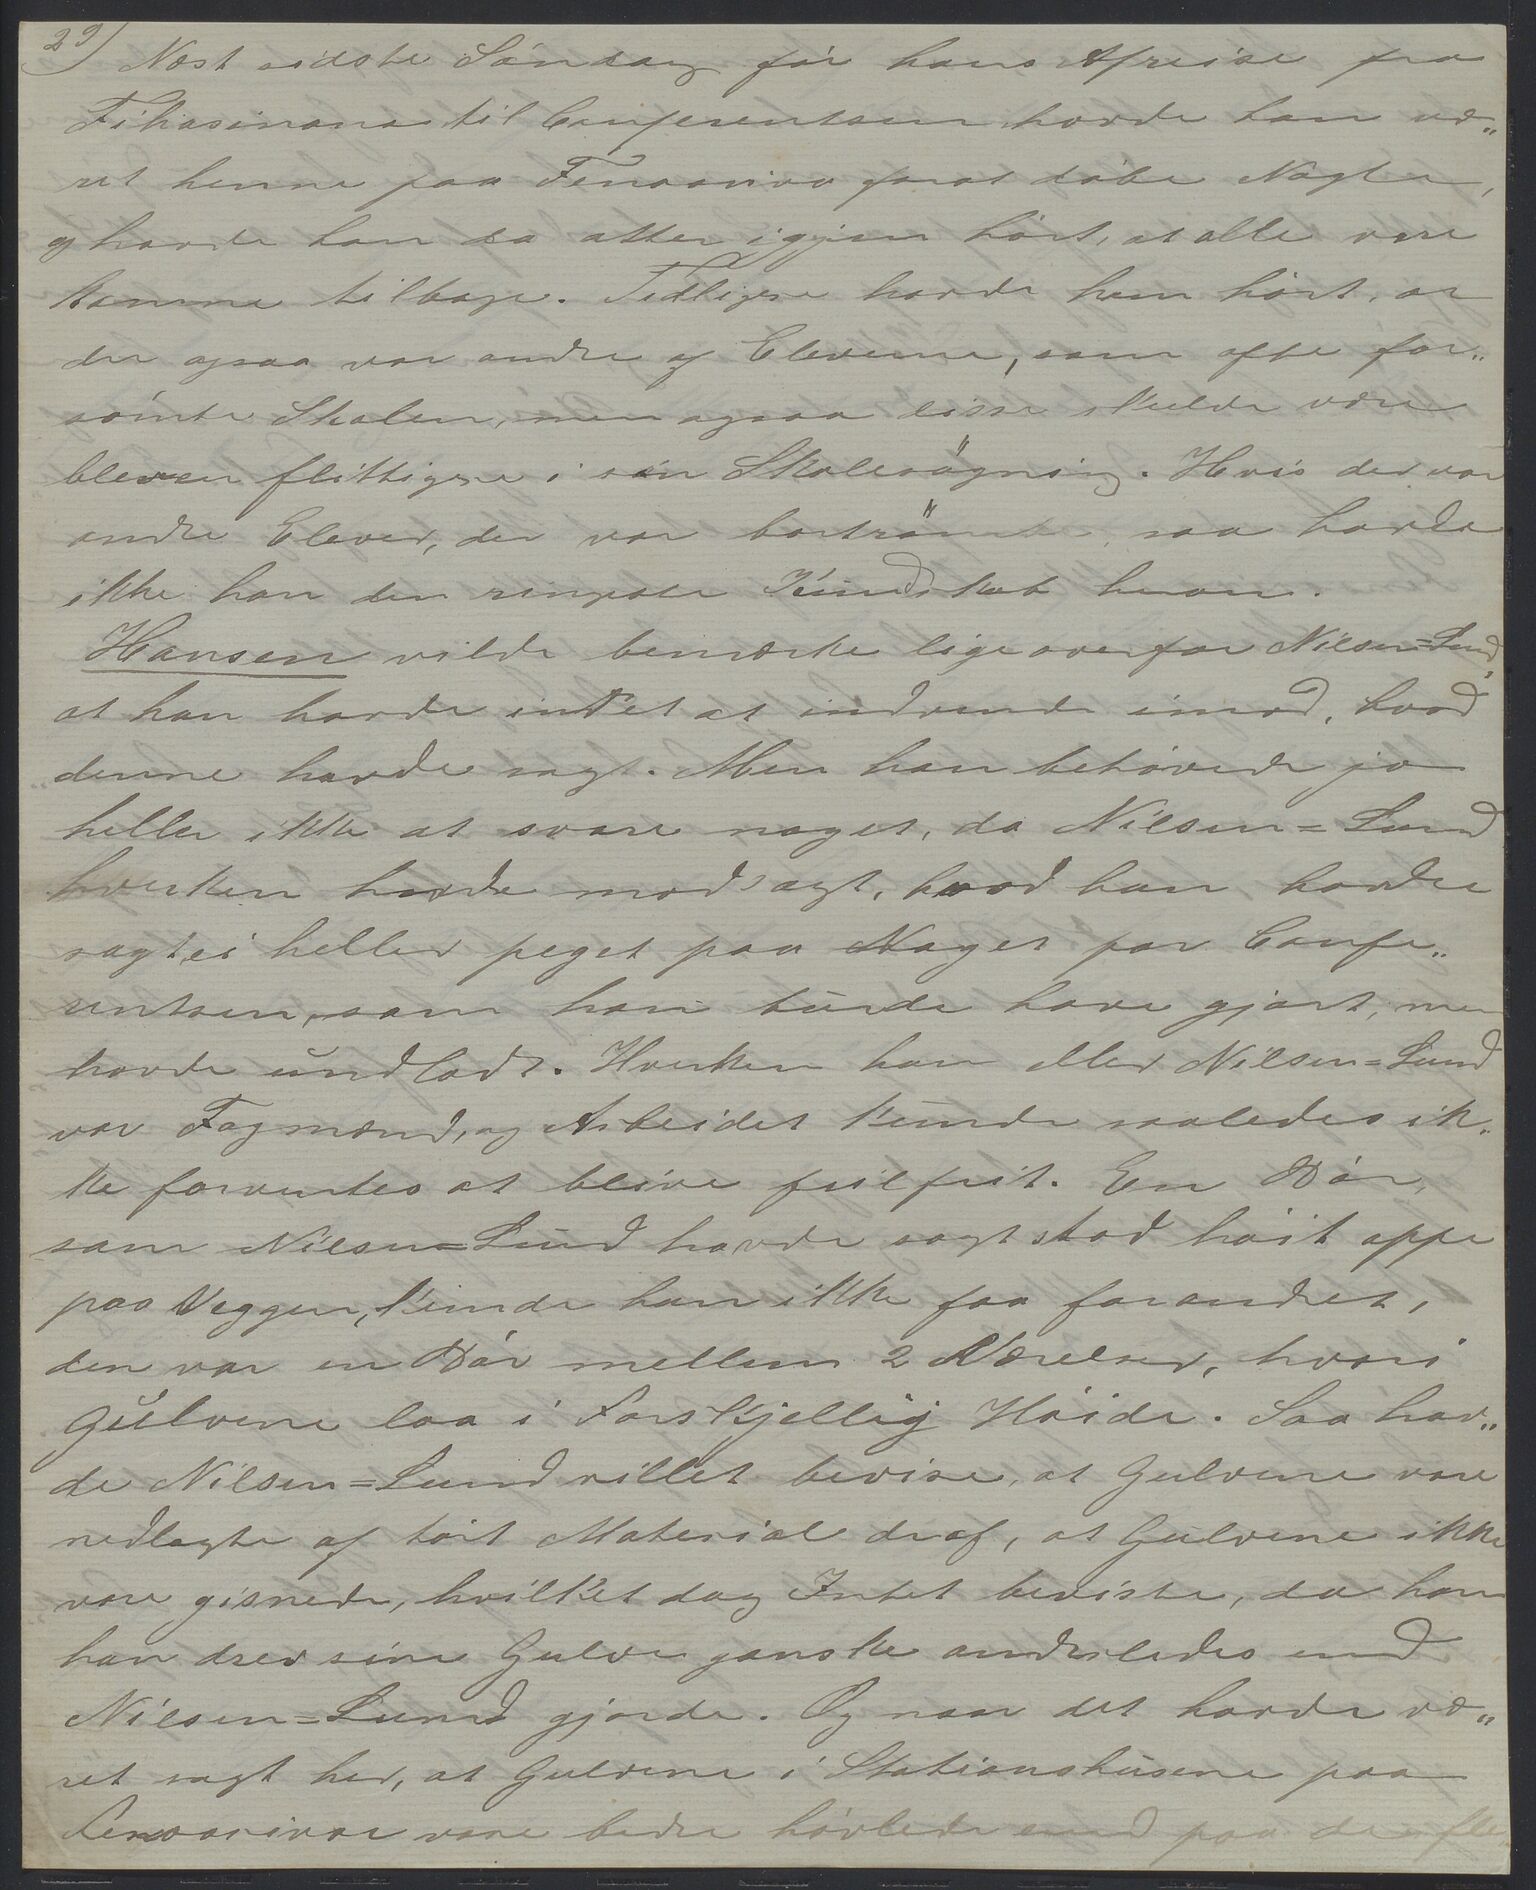 29) Næst sidste Söndag för hans Afreise fra
Fihasinana til Conferentsen havde han væ„
ret henne paa Fenoarivo forat döbe Nogle,
og havde han da atter igjen hört, at alle vare
komne tilbage. Tidligere havde han hört, at
der ogsaa var andre af Eleverne, som ofte for„
sömte Skolen, men ogsaa disse skulde være
bleven flittigere i sin Skolesögning. Hvis der var
andre Elever, der var bortrömte, saa havde
ikke han den ringeste Kundskab herom.
Hansen vilde bemærke ligeoverfor Nilsen=Lund,
at han havde intet at indvende imod, hvad
denne havde sagt. Men han behövede jo
heller ikke at svare noget, da Nilsen=Lund
hverken havde modsagt, hvad han havde
sagt, ei heller peget paa Noget for Confe„
rentsen, som han burde have gjort, men
havde undladt. Hverken han eller Nilsen=Lund
var Fagmænd, og Arbeidet kunde saaledes ik„
ke forventes at blive feilfrit. En Dör,
som Nilsen=Lund havde sagt stod höit oppe
paa Væggen, kunde han ikke faa forandret,
den var en Dör mellem 2 Værelser, hvori
Gulvene laa i forskjellig Höide. Saa hav„
de Nilsen=Lund villet bevise, at Gulvene vare
nedlagte af tört Material deraf, at Gulvene ikke
vare gisnede, hvilket dog Intet beviste, da han
han drev sine Gulve ganske anderledes end
Nilsen=Lund gjorde. Og naar det havde væ„
ret sagt her, at Gulvene i Stationshusene paa
Fenoarivo vare bedre hövlede end paa de fle„